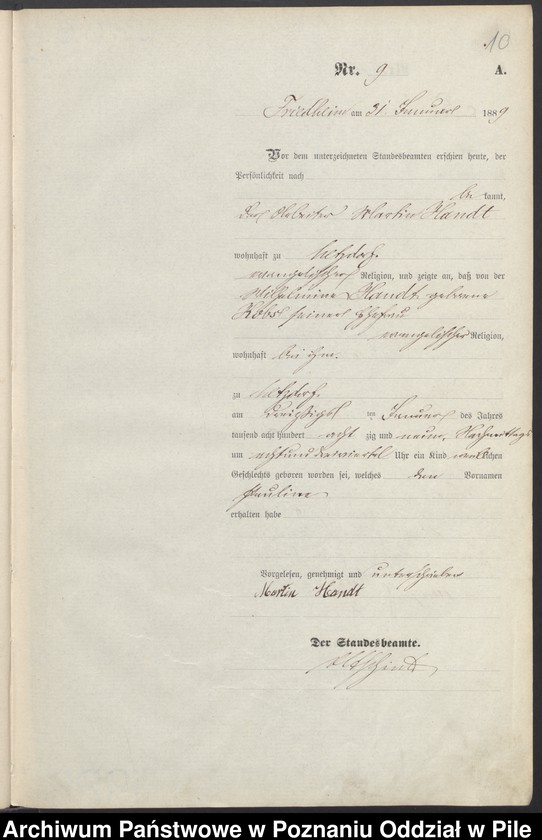 10
Nr. 9 A.
Friedheim am 31 Januar 1889
Vor dem unterzeichneten Standesbeamten erschien heute, der
Persönlichkeit nach
be kannt,
der Arbeiter Martin Handt
wohnhaft zu
evangelischer Religion, und zeigte an, daß von der
Wilhelmine Handt geborene
Kobs seiner Ehefrau
evangelischer Religion,
wohnhaft bei ihm.
zu
am dreißigsten Januar des Jahres
tausend acht hundert acht zig und neun, Nachmittags
um acht und dreiviertel Uhr ein Kind weiblichen
Geschlechts geboren worden sei, welches den Vornamen
Pauline
erhalten habe
Vorgelesen, genehmigt und unterschrieben
Martin Handt
Der Standesbeamte.
Archiwum Państwowe w Poznaniu Oddział w Pile